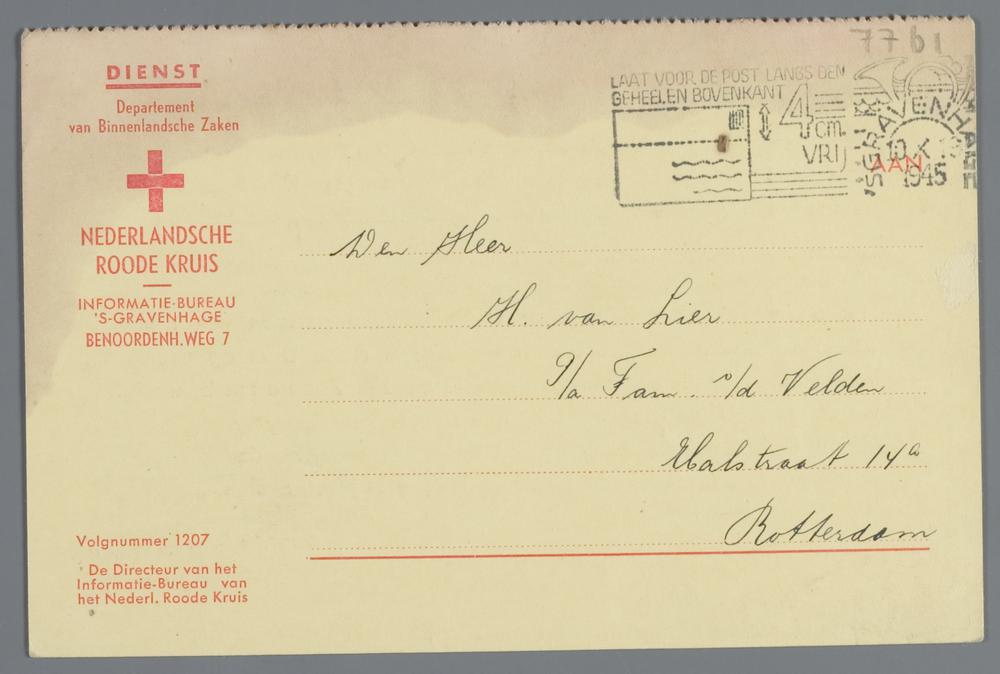 DIENST
Departement
van Binnenlandsche Zaken
NEDERLANDSCHE
ROODE KRUIS
INFORMATIE-BUREAU
'S-GRAVENHAGE
BENOORDENH.WEG 7
77 61
LAAT VOOR DE POST LANGS DEN
GEHEELEN BOVENKANT
4
cm.
VRIJ
'SGRAVENHAGE
10 X
1945
AAN
Den Heer
H. van Lier
p/a Fam. v/d Velden
14a
Rotterdam
Volgnummer 1207
De Directeur van het
Informatie-Bureau van
het Nederl. Roode Kruis